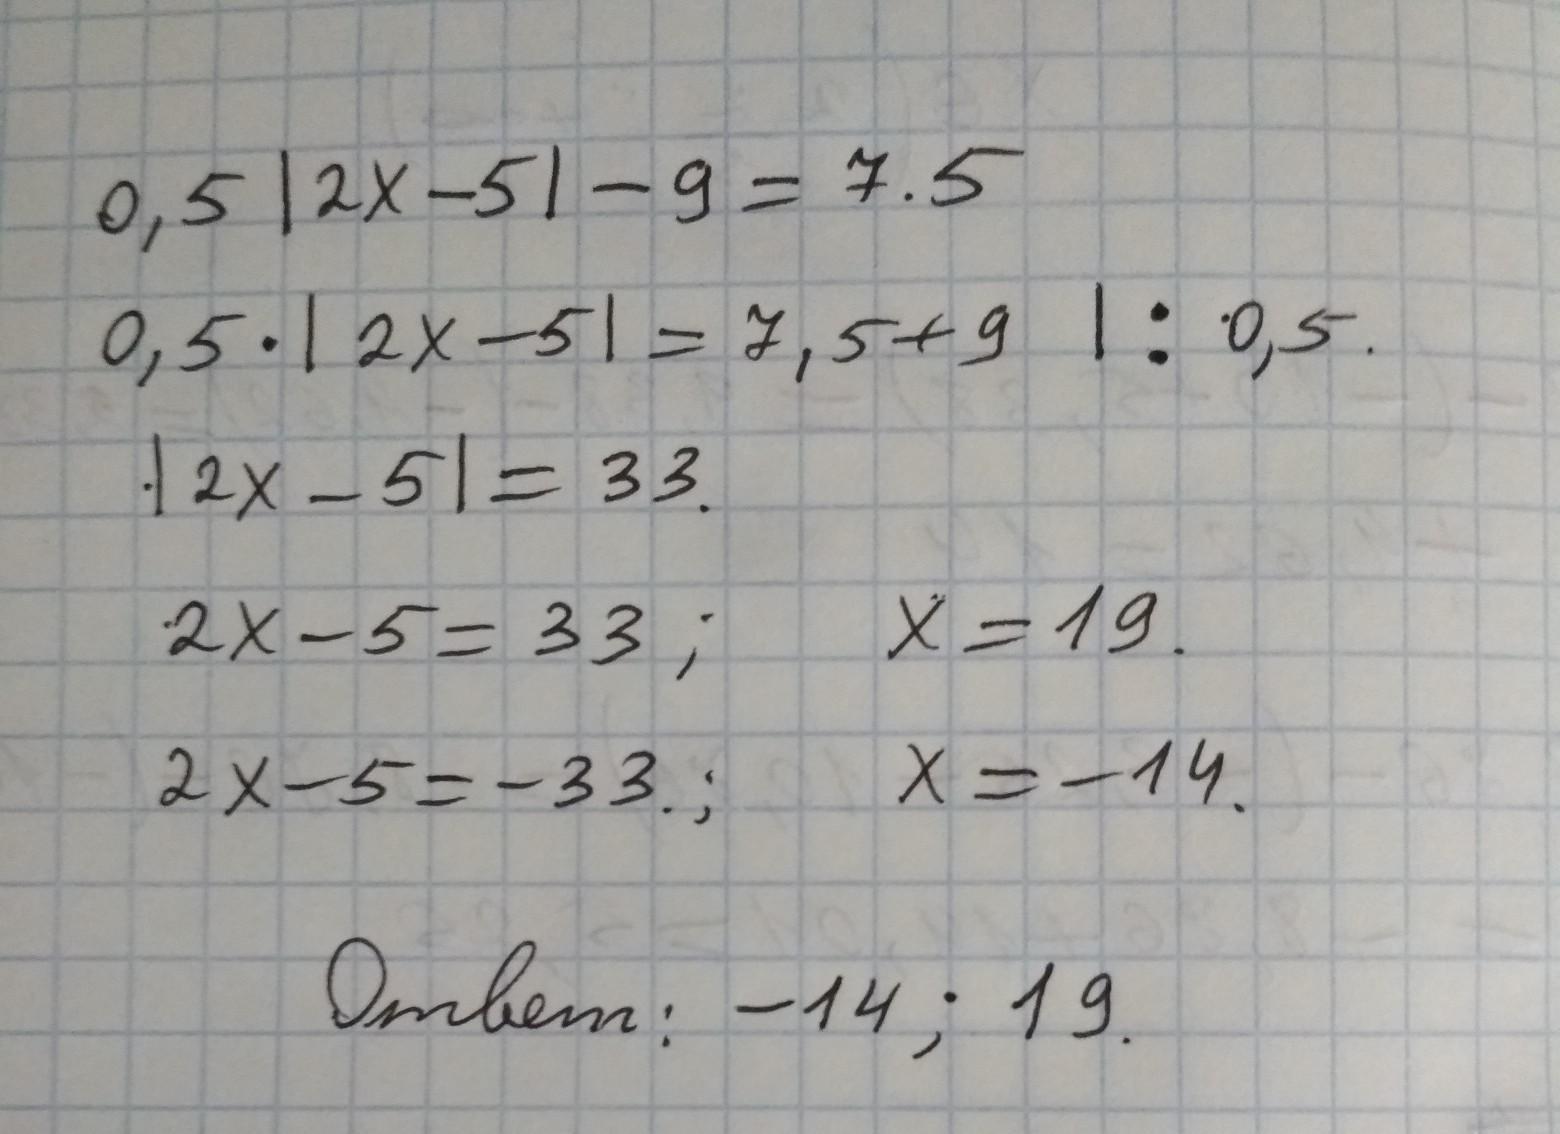 0,5 |2x-5| - 9 = 7.5
0,5·|2x-5| = 7,5+9 |: 0,5.
|2x-5| = 33.
2x-5=33; x=19.
2x-5=-33.; x=-14.
Ответ: -14; 19.